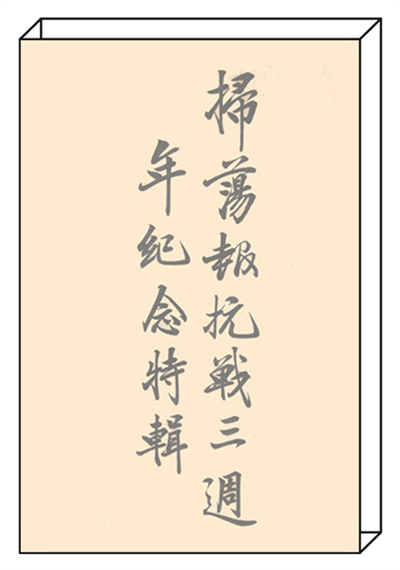 掃蕩報抗戰三週
年紀念特輯